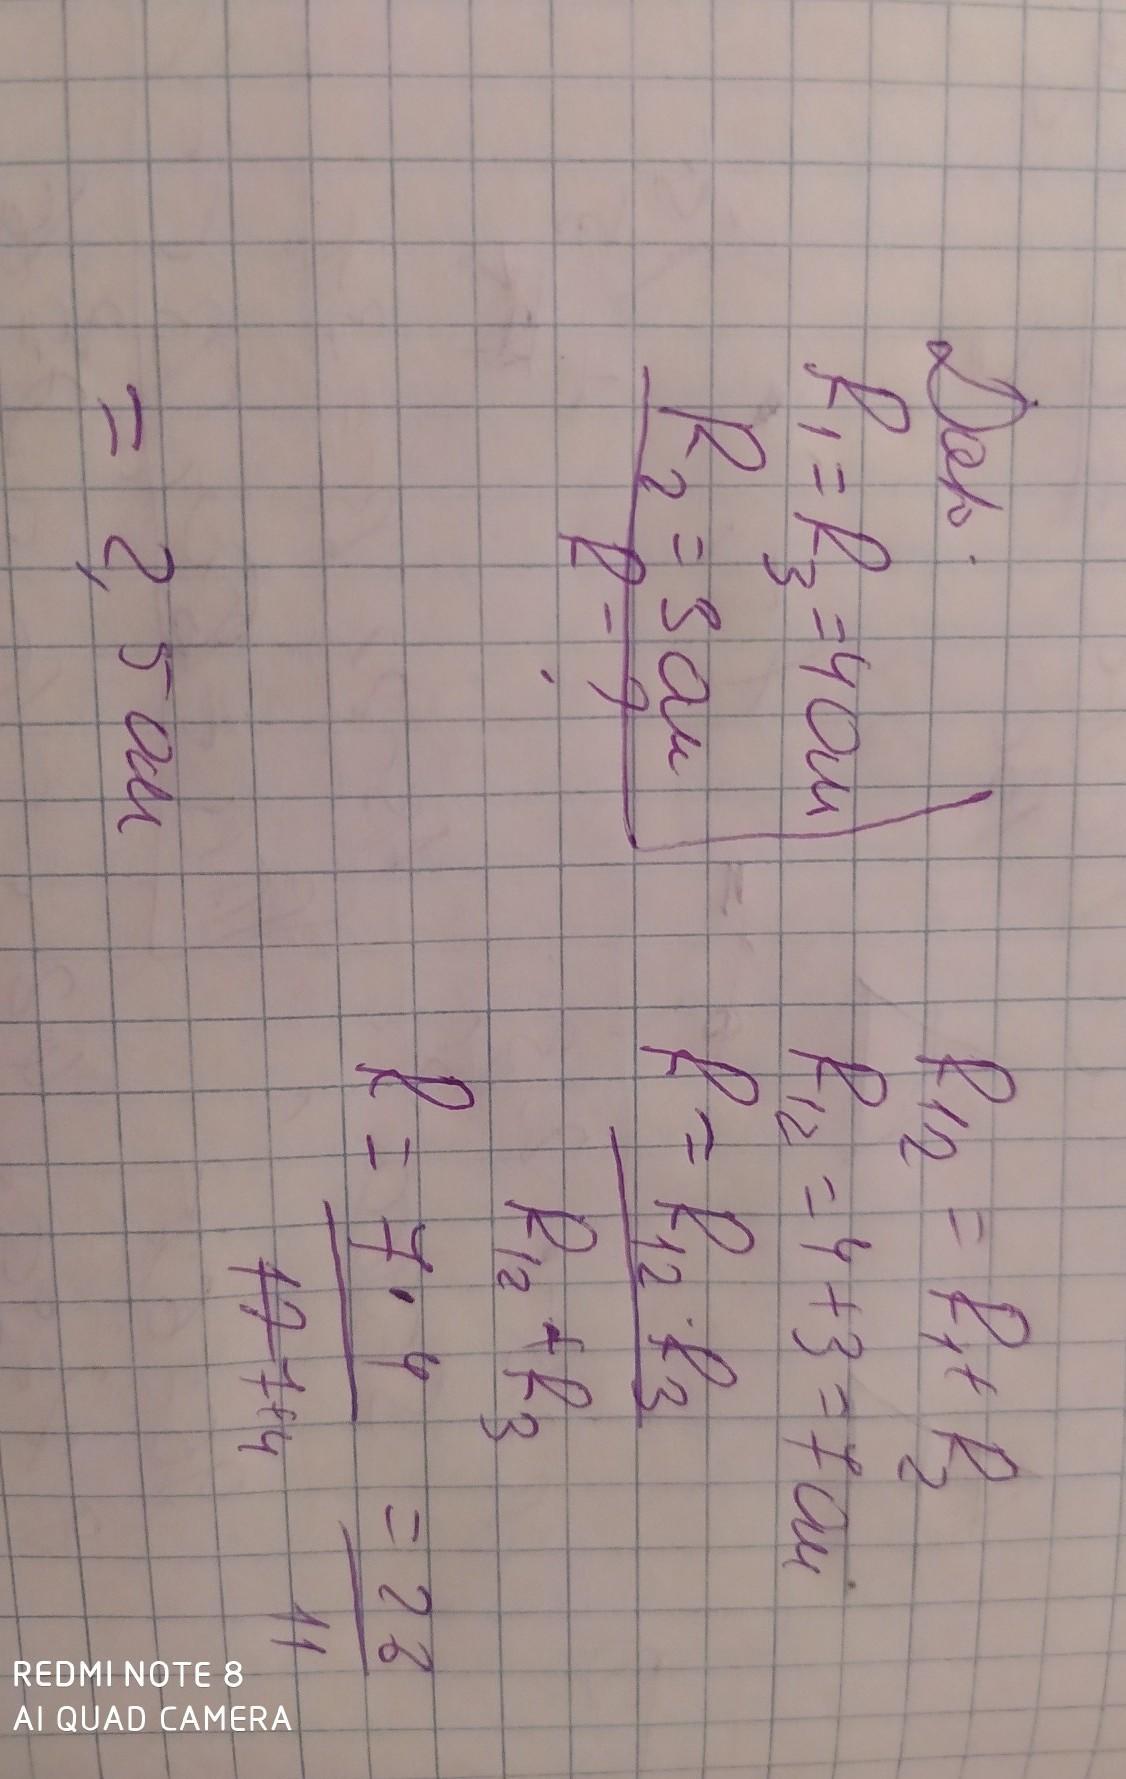 Дан.
R1 = R3 = 4 Ом
R2 = 3 Ом
R - ?
R12 = R1 + R2
R12 = 4 + 3 = 7 Ом
R = R12 · R3
R12 + R3
R = 7 · 4 = 28
7+4 11
= 2,5 Ом
REDMI NOTE 8
AI QUAD CAMERA